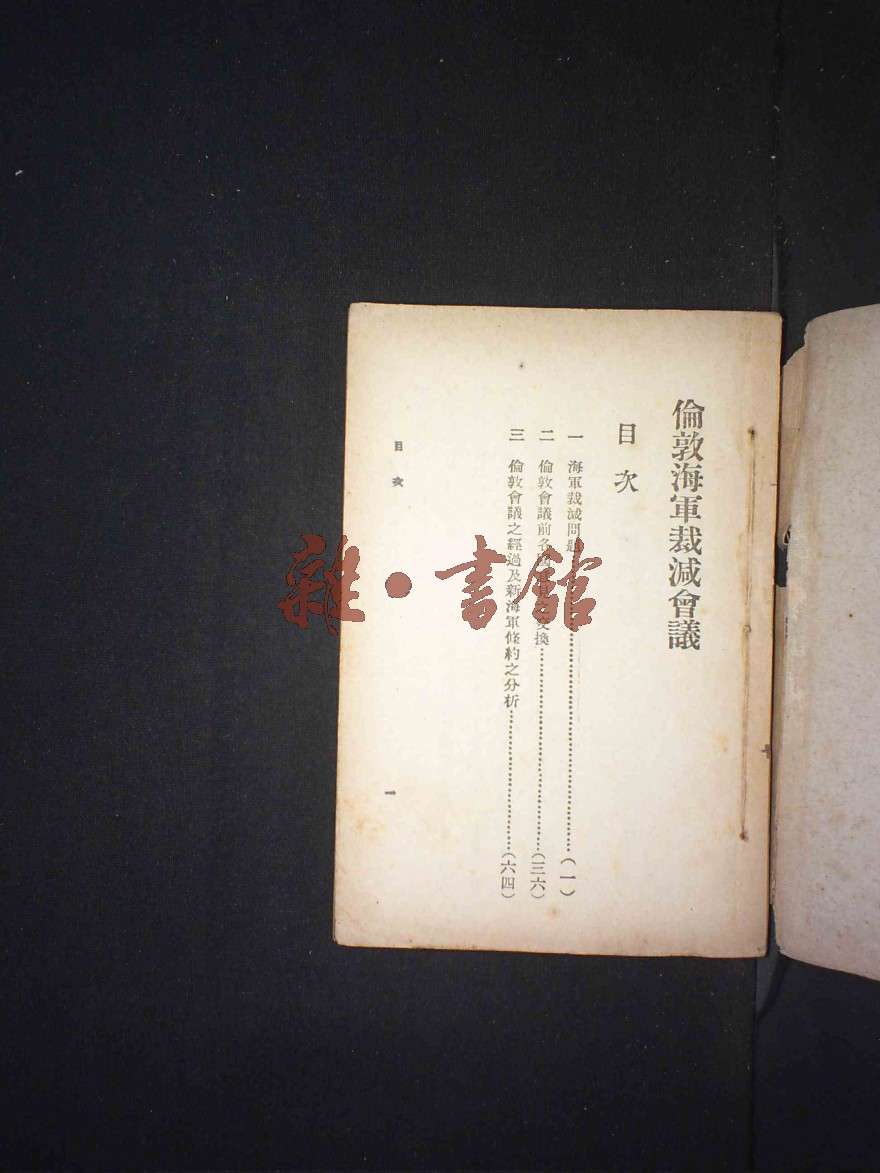 倫敦海軍裁減會議
目次
一 海軍裁減問題……(一)
二 倫敦會議前各國意見之交換……(三六)
三 倫敦會議之經過及新海軍條約之分析……(六四)
目次
一
雜·書館